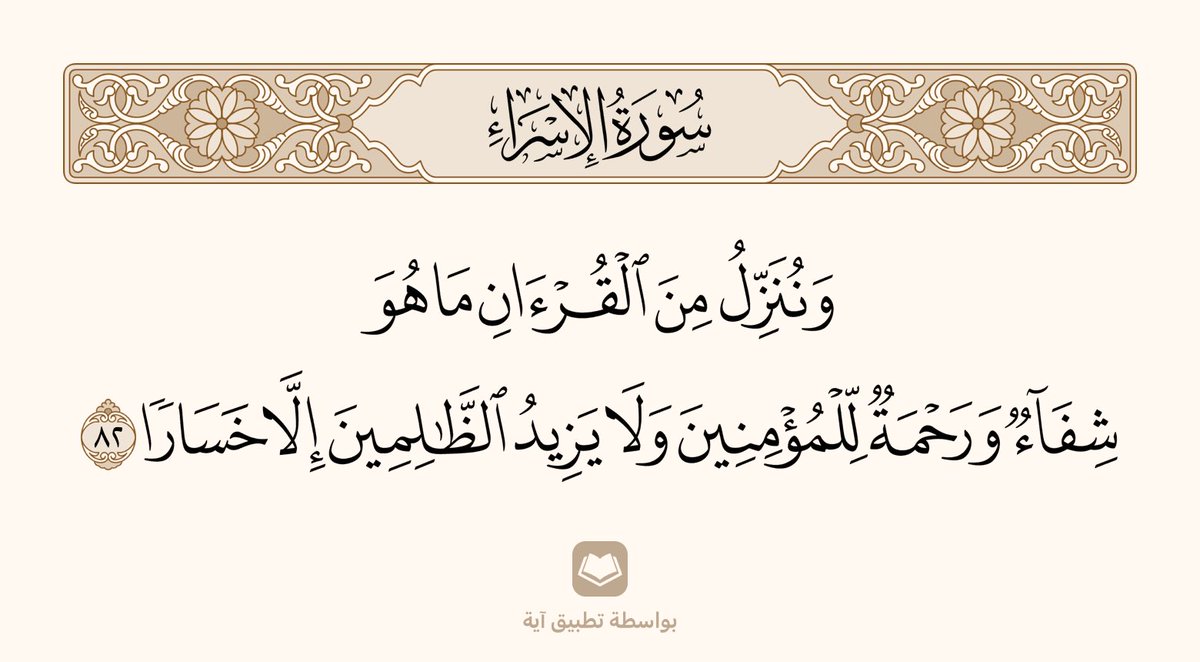 سُورَةُ الإِسْرَاءِ
وَنُنَزِّلُ مِنَ ٱلۡقُرۡءَانِ مَا هُوَ
شِفَآءٞ وَرَحۡمَةٞ لِّلۡمُؤۡمِنِينَ وَلَا يَزِيدُ ٱلظَّٰلِمِينَ إِلَّا خَسَارٗا ٨٢
بواسطة تطبيق آية